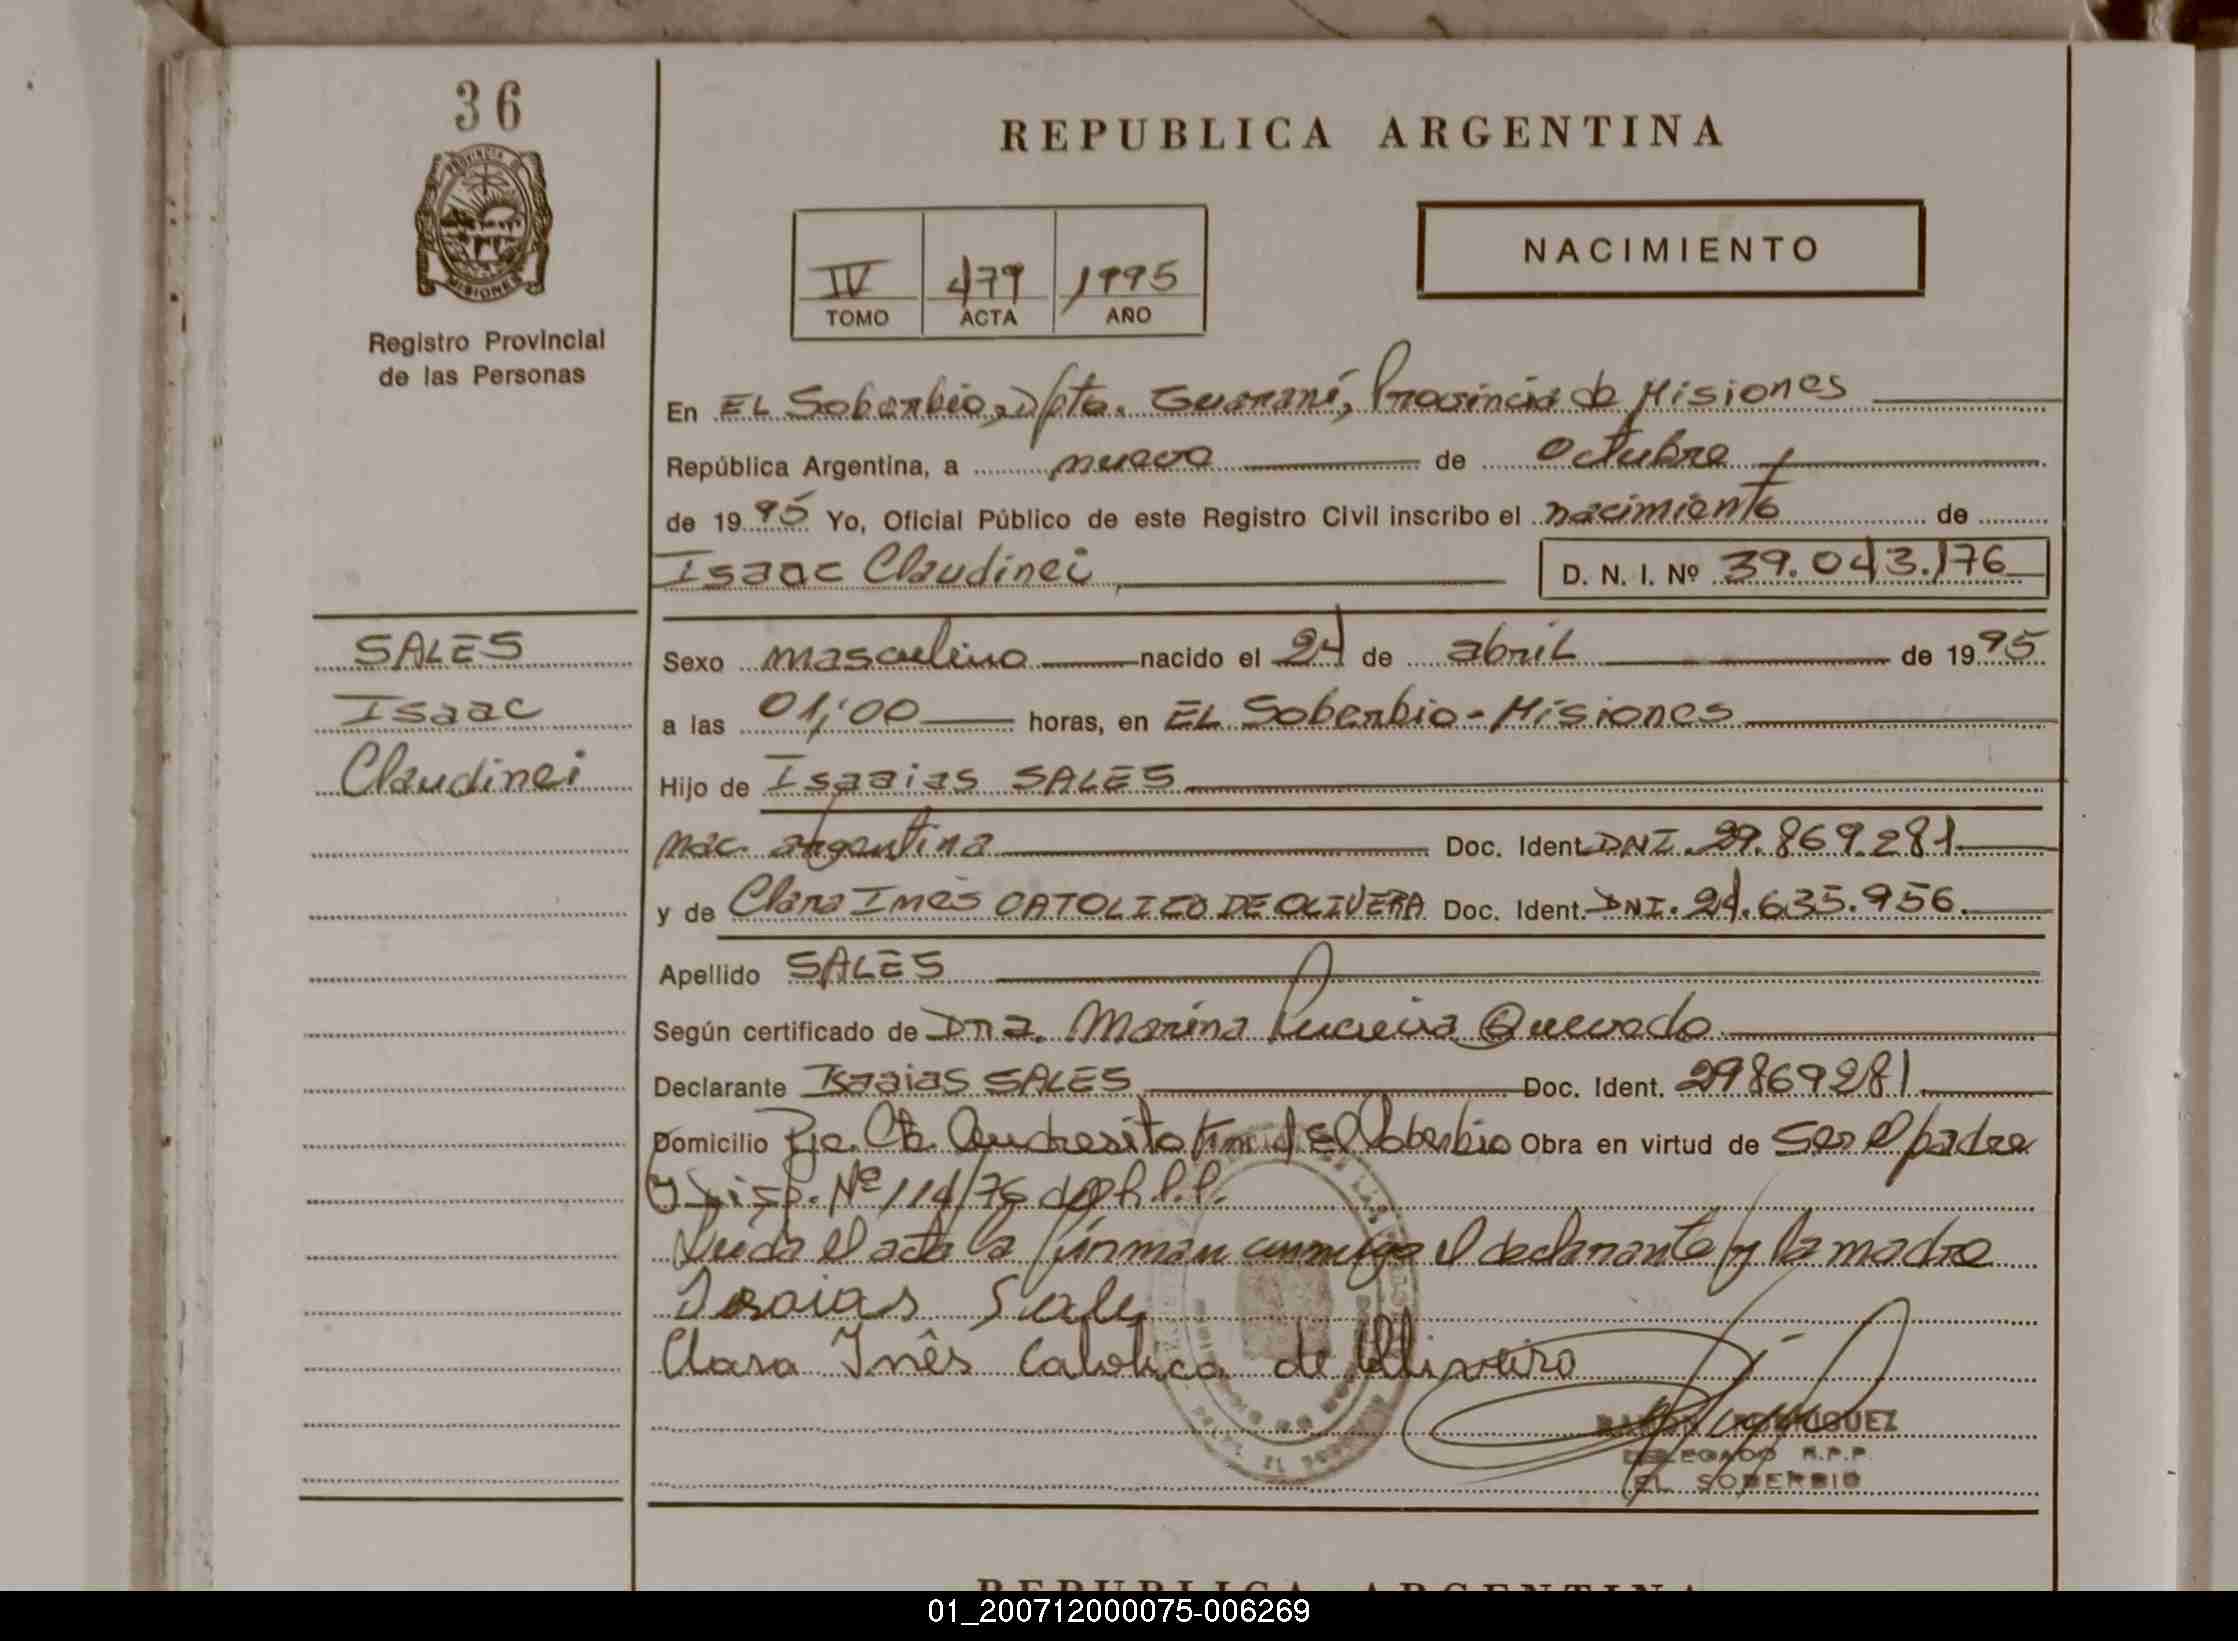 36
PROVINCIA DE
MISIONES
Registro Provincial
de las Personas
REPUBLICA ARGENTINA
NACIMIENTO
IV 479 1995
TOMO ACTA AÑO
En EL Soberbio, Dpto. Guaraní, Provincia de Misiones
República Argentina, a nueve de octubre
de 1995 Yo, Oficial Público de este Registro Civil inscribo el nacimiento de
Isaac Claudinei D. N. I. Nº 39.043.176
SALES
Isaac
Claudinei
Sexo masculino nacido el 24 de abril de 1995
a las 01:00 horas, en EL Soberbio - Misiones
Hijo de Isaaias SALES
nac. argentina Doc. Ident. DNI. 29.869.281
y de Clara Inés CATOLICO DE OLIVERA Doc. Ident. DNI. 24.635.956.
Apellido SALES
Según certificado de Dra. Marina Quevedo
Declarante Isaaias SALES Doc. Ident. 29869281
Domicilio Pje. Andresito El Soberbio Obra en virtud de Ser el padre
y Disp. Nº 114/76
Leída el acta la firman conmigo el declarante y la madre
Isaias Sales
Clara Inês Catolica de Oliveira
RAMON RODRIGUEZ
DELEGADO R.P.P.
EL SOBERBIO
REPUBLICA ARGENTINA
01_200712000075-006269